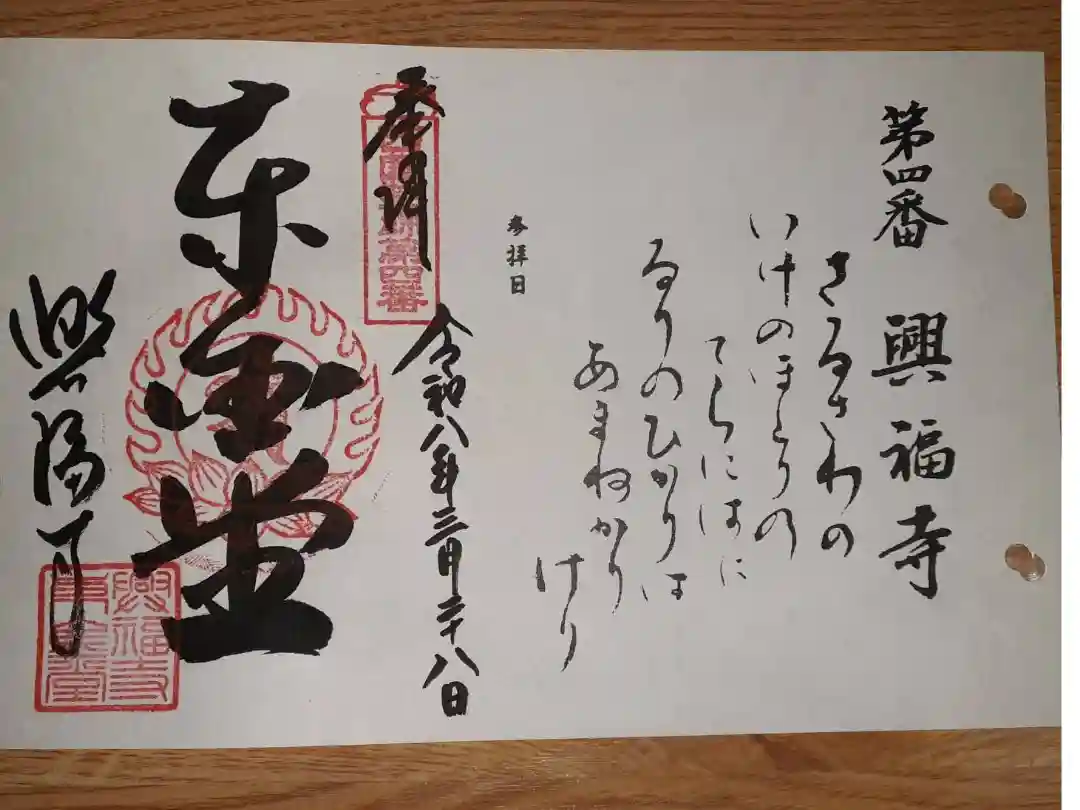 第四番 興福寺
さるさわの
いけのほとりの
てらにはに
るりのひかりは
あまねかり
けり
参拝日
奉拝
第四番
令和八年三月二十八日
東金堂
興福寺
興福寺
東金堂